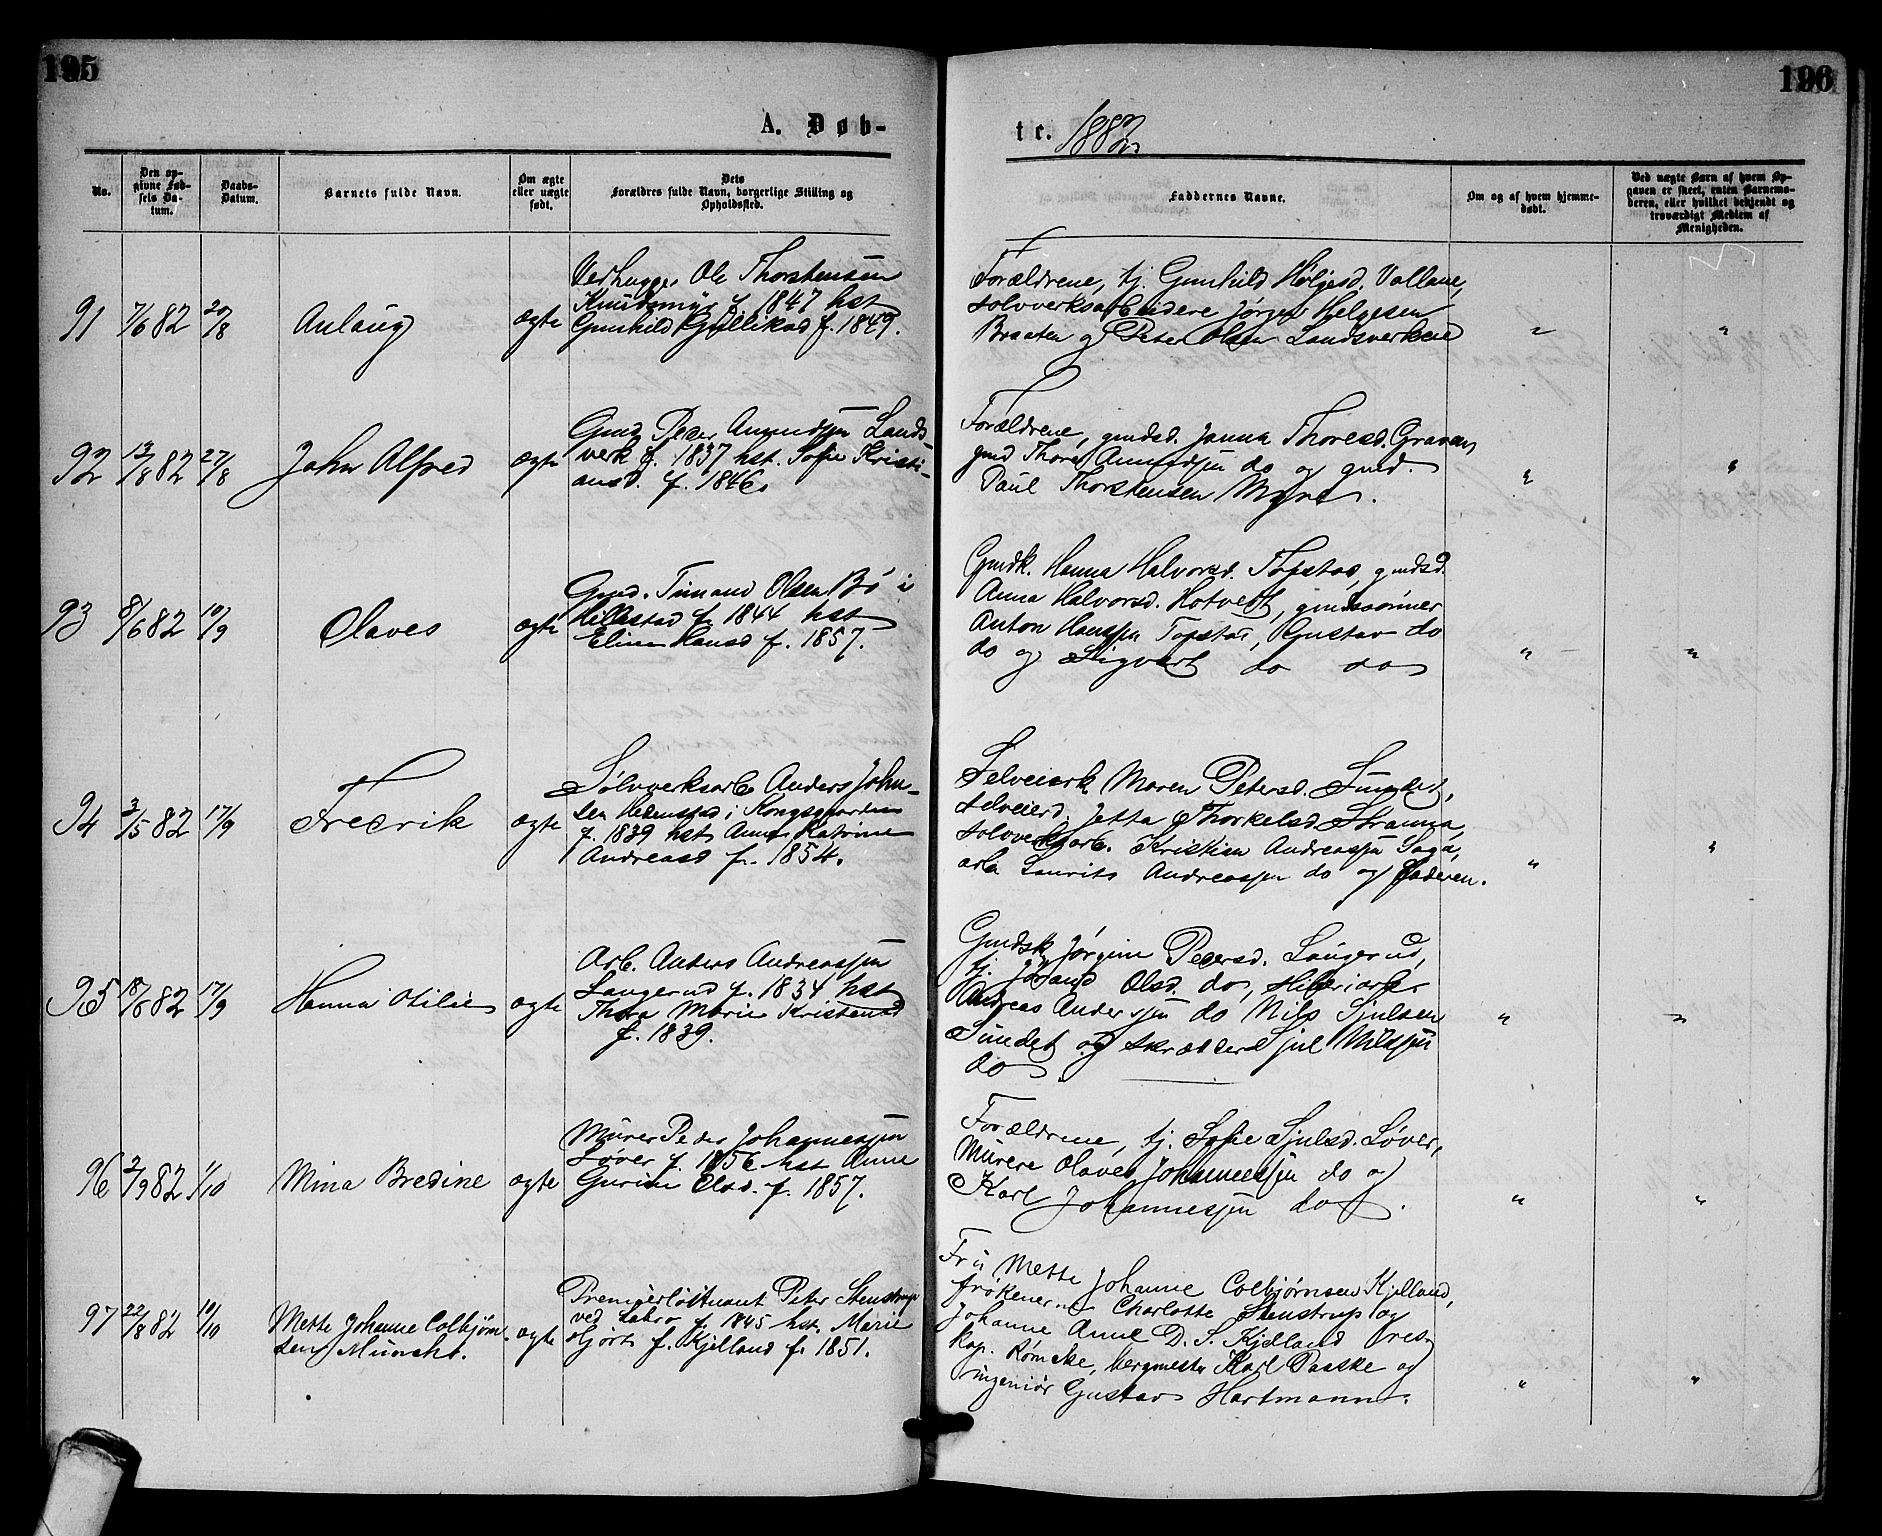 195
196
A. Døb-
te. 1882
No.
Den opgivne Fødsels Datum.
Daabs-Datum.
Barnets fulde Navn.
Om ægte eller uægte født.
Dets Forældres fulde Navn, borgerlige Stilling og Opholdssted.
Faddernes Navne.
Om og af hvem hjemmedøbt.
Ved uægte Børn af hvem Opgaven er skeet, enten Barnemoderen, eller hvilket bekjendt og troværdigt Medlem af Menigheden.
91 7/6 82 20/8 Aslaug ægte
Vedhugger Ole Thorstensen
Knutsmyr f. 1847 hst
Gunhild Gjellikad f. 1849.
Forældrene, tj. Gunhild Helgesd. Vollane,
sølvverksarbeidere Jørgen Helgesen
Braaten og Peter Olsen Landsverkene
" "
92 12/8 82 27/8 John Alfred ægte
Gmd Peder Amundsen Lands-
verk f. 1837 hst. Sofie Kristi-
ansd. f. 1846.
Forældrene, gmdsd. Janna Thoresd. Graven,
gmd Thore Amundsen do og gmd.
Paul Thorstensen Myre.
" "
93 8/6 82 10/9 Olaves ægte
Gmd. Timand Olsen Bø i
Hillestad f. 1844 hst
Eline Hansd f. 1857.
Gmdk. Hanna Halvorsd. Tofstad, gmdsd.
Anna Halvorsd. Hotvedt, gmdssønner
Anton Hanssen Tofstad, Gustav do
do og Sigvart do do
" "
94 3/5 82 17/9 Fredrik ægte
Sølvverksarb. Anders John-
sen Hedenstad i Kongsgaarden
f. 1839 hst Anne Katrine
Andreasd f. 1854.
Selveierk Maren Petersd. Sundet,
selveierd. Jetta Thorkelsd. Stranna,
sølvverksarb. Kristian Andreassen Saga,
arb Laurits Andreassen do og Faderen.
" "
95 18/6 82 17/9 Hanna Otilie ægte
Arb. Anders Andreassen
Langerud f. 1834 hst
Thora Marie Kristensd
f. 1839.
Gmdsk Jørgine Pedersd. Langerud,
tj. Jørand Olsd. do,
Andreas Andersen do Nils Sjulsen
Sundet og skrædder Sjul Nilssen
do
" "
96 2/9 82 1/10 Mina Bredine ægte
Murer Peder Johannessen
Løver f. 1856 hst Anne
Gurine Olsd. f. 1857.
Forældrene, tj. Sofie Sjulsd. Løver,
Murere Olaves Johannessen do og
Karl Johannessen do.
" "
97 22/8 82 10/10 Mette Johanne Colbjørn-
sen Münscht. ægte
Premierløitnant Peter Stenstrup
ved Labro f. 1845 hst. Marie
Hjort f. Kjelland f. 1851.
Fru Mette Johanne Colbjørnsen Kjelland,
frøkenerne Charlotte Stenstrup og
Johanne Anne D. S. Kjelland res.
kap. Rømcke, bergmester Karl Paaske og
ingeniør Gustav Hartmann.
" "